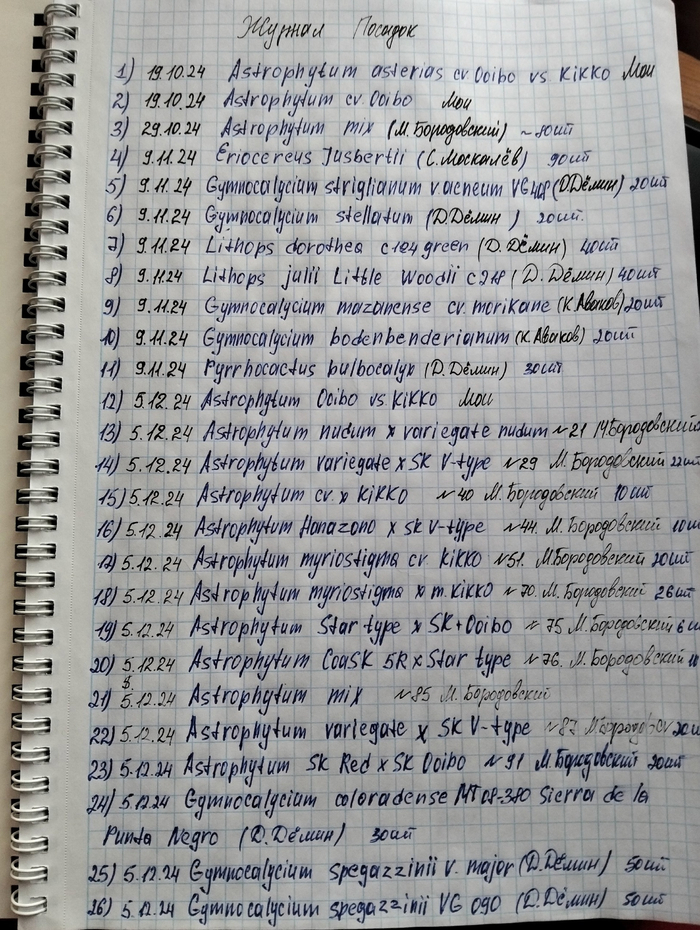 Журнал Посадок
1) 19.10.24 Astrophytum asterias cv. Ooibo vs. KiKKO Мои
2) 19.10.24 Astrophytum cv. Ooibo Мои
3) 29.10.24 Astrophytum mix (М. Бородовский) ~80шт
4) 9.11.24 Eriocereus Jusbertii (С. Москалёв) 90шт
5) 9.11.24 Gymnocalycium striglianum v aeneum VG408 (Д.Дёмин) 20шт
6) 9.11.24 Gymnocalycium stellatum (Д.Дёмин) 20шт.
7) 9.11.24 Lithops dorothea c124 green (Д. Дёмин) 40шт
8) 9.11.24 Lithops julii Little Woodii c218 (Д. Дёмин) 40шт
9) 9.11.24 Gymnocalycium mazanense cv. morikane (К. Аваков) 20шт
10) 9.11.24 Gymnocalycium bodenbenderianum (К. Аваков) 20шт
11) 9.11.24 Pyrrhocactus bulbocalyx (Д. Дёмин) 30шт
12) 5.12.24 Astrophytum Ooibo vs. KiKKO Мои
13) 5.12.24 Astrophytum nudum x variegate nudum №21 М.Бородовский
14) 5.12.24 Astrophytum variegate x SK V-type №29 М. Бородовский 22шт
15) 5.12.24 Astrophytum cv. x KiKKO №40 М. Бородовский 10шт
16) 5.12.24 Astrophytum Hanazono x SK V-type №44. М. Бородовский 10шт
17) 5.12.24 Astrophytum myriostigma cv. KiKKO №51. М.Бородовский 20шт
18) 5.12.24 Astrophytum myriostigma x m. KiKKO №70. М. Бородовский 26шт
19) 5.12.24 Astrophytum Star type x SK+Ooibo №75 М. Бородовский 6
20) 5.12.24 Astrophytum CoaSK 5R x Star type №76. М. Бородовский
21) 5.12.24 Astrophytum mix №85 М. Бородовский
22) 5.12.24 Astrophytum variegate x SK V-type №87 20
23) 5.12.24 Astrophytum SK Red x SK Ooibo №91 М. Бородовский 20шт
24) 5.12.24 Gymnocalycium coloradense MT08-380 Sierra de la
Punta Negro (Д. Дёмин) 30шт
25) 5.12.24 Gymnocalycium spegazzinii v. major (Д. Дёмин) 50шт
26) 5.12.24 Gymnocalycium spegazzinii VG 090 (Д. Дёмин) 50шт